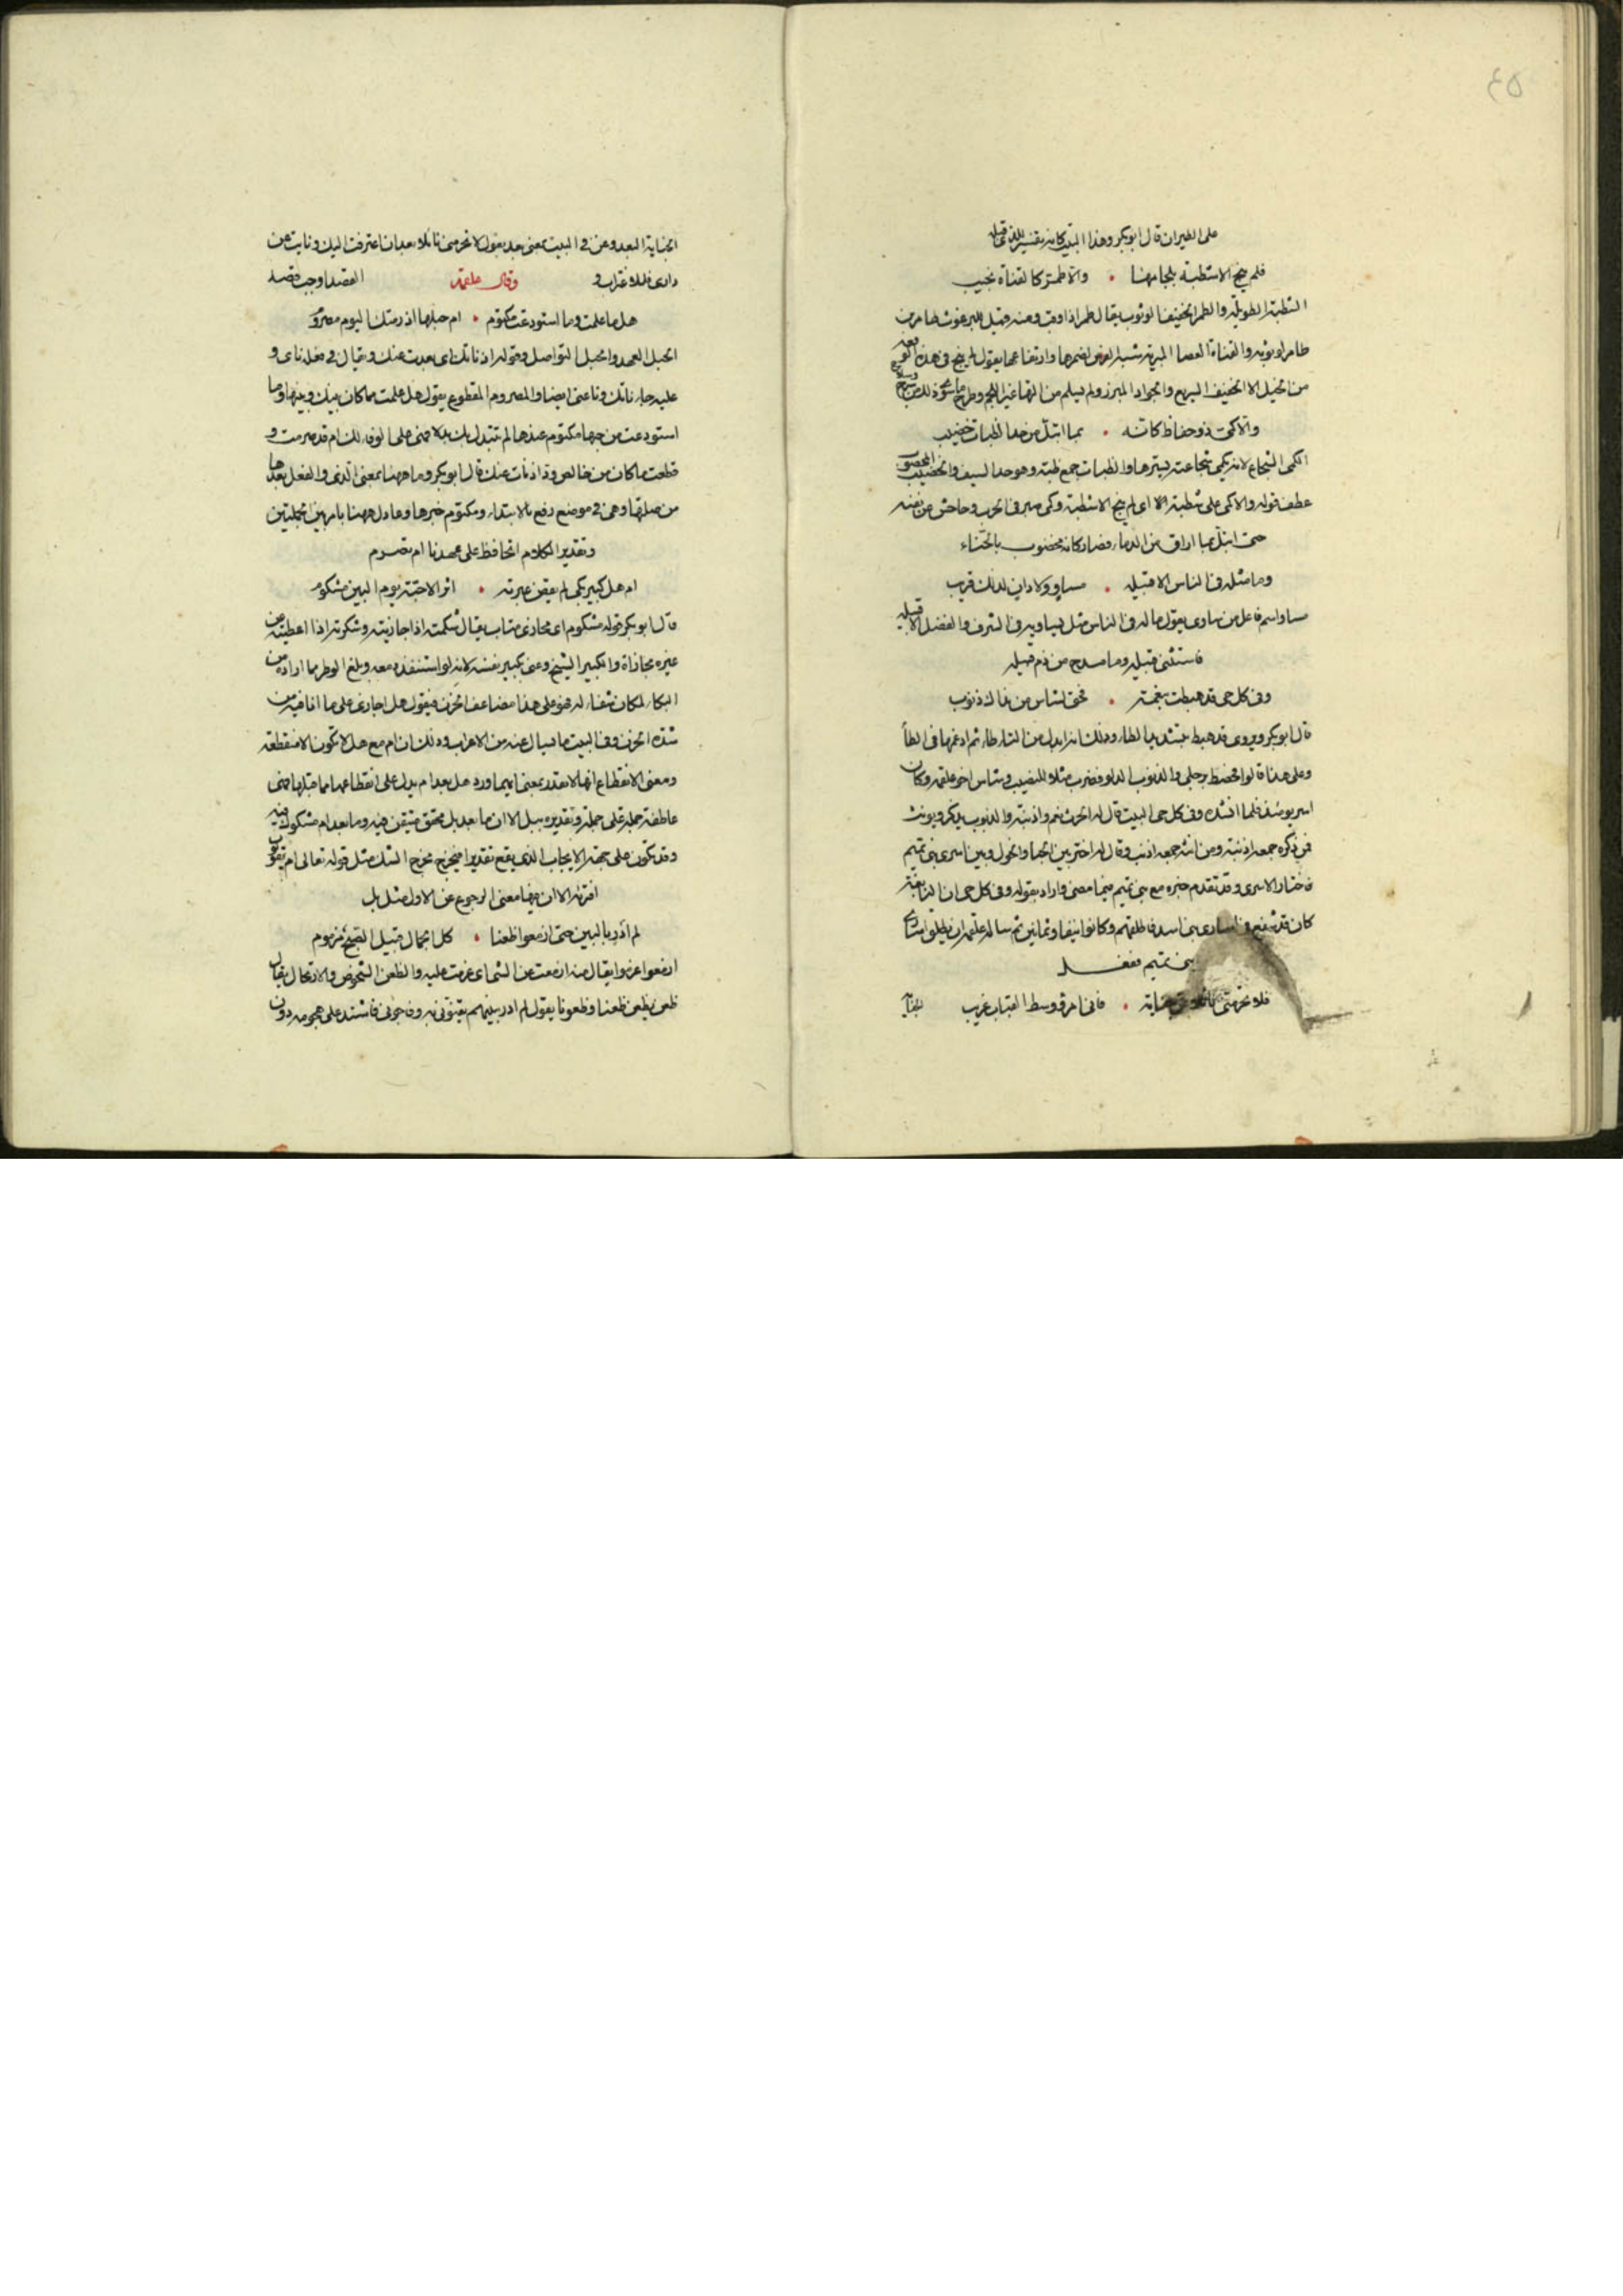 ٤٥
على الطيران قال ابو بكر وهذا البيت كانه تفسير للذي قبله
فلم ينج الا شطبة بلجامها • والا طمر كالقناة نجيب
الشطبة الطويلة والطمر الخفيف الوثوب يقال طمر اذا وثب ومنه قيل للبرغوث طامر بن
طامر لوثوبه والقناة العصا شبه الفرس لضمرها وارتفاعها يقول لم ينج في هذه
من الخيل الا الخفيف السريع والجواد المبرز ولم يسلم من
والا كمي ذو حفاظ كانه • بما ابتل من حد الظبات خضيب
الكمي الشجاع لانه يكمي شجاعته يسترها والظبات جمع ظبة وهو حد السيف والخضيب المخضوب
عطف قوله والا كمي على شطبة اي لم ينج الا شطبة وكمي صبر في الحرب وحامى عن نفسه
حتى ابتل بما اراق من الدماء فصار كانه مخضوب بالحناء
وما مثله في الناس الا قبيله • مساو ولا دان لذلك قريب
مساو اسم فاعل من ساوى يقول ما له في الناس مثل يساويه في الشرف والفضل الا قبيله
فاستثنى قبيله وما مدح من ذم قبيله
وفي كل حي قد خبطت بنعمة • فحق لشاس من نداك ذنوب
قال ابو بكر ويروى قد خبط بتشديد الطاء وذلك انه ابدل من التاء طاء ثم ادغمها في الطاء
وعلى هذا قالوا فحصط برجلي والذنوب الدلو فضرب مثلا للنصيب وشاس اخو علقمة وكان
اسر يومئذ فلما انشده وفي كل حي البيت قال له الحرث نعم واذنبة والذنوب يذكر ويونث
فمن ذكره جمعه اذنبة ومن انثه جمعه اذنب وقال له اختر بين الحباء والخول وبين اسرى بني تميم
فاختار الاسرى وقد تقدم خبره مع بني تميم فيما مضى واراد بقوله وفي كل حي ان النابغة
كان قد شفع في اسارى بني اسد فاطلقهم وكانوا نيفا وثمانين ثم ساله علقمة ان يطلق اسارى
بني تميم ففعل
فلا تحرمني نائلا عن جنابة • فاني امرؤ وسط القباب غريب
الجنابة البعد وعن في البيت بمعنى بعد يقول لا تحرمني نائلا بعد ان اعترفت اليك ونايت عن
داري فللاغتراب و القصد اوجب قصد
وقال علقمة
هل ما علمت وما استودعت مكتوم • ام حبلها اذ نأتك اليوم مصروم
الحبل العهد والحبل التواصل وقوله اذ ناتك اي بعدت عنك ويقال في فعله ناى و
عليه جاء ناتك وناء عني ايضا والمصروم المقطوع يقول هل علمت مما كان بينك وبينها وما
استودعت من حبها مكتوم عندها لم تتبدل بك بدلا فهي على الوفاء لك ام قد صرمت و
قطعت ما كان من خالص وده اذ نات عنك قال ابو بكر وما ههنا بمعنى الذي والفعل بعدها
من صلتها وهي في موضع رفع بالابتداء ومكتوم خبرها وعادل ههنا بام بين جملتين
وتقدير الكلام اتحافظ على عهدنا ام تصرم
ام هل كبير بكى لم يقض عبرته • اثر الاحبة يوم البين مشكوم
قال ابو بكر قوله مشكوم اي مجازى مثاب يقال شكمته اذا جازيته وشكرته اذا اعطيته من
غيره مجازاة والكبير الشيخ وعنى بكبير نفسه لانه لو استنفد دمعه وبلغ الوطر مما اراده من
البكاء لكان شفاء له فهو على هذا مضاعف الحزن فيقول هل اجازى على ما انا فيه من
شدة الحزن وفي البيت ما يسال عنه من الاعراب وذلك ان ام مع هل لا تكون الا منقطعة
ومعنى الانقطاع انها لا تقدر بمعنى ايهما وورد هل بعد ام يدل على انقطاعها مما قبلها فهي
عاطفة جملة على جملة وتقديره ببل الا ان ما بعد بل محقق متيقن فيه وما بعد ام مشكوك فيه
وقد تكون على جهة الايجاب الذي يقع تقديرا فيخرج مخرج الشك مثل قوله تعالى ام يقولون
افتراه الا ان فيها معنى الرجوع عن الاول مثل بل
لم ادر بالبين حتى ازمعوا ظعنا • كل الجمال قبيل الصبح مزموم
ازمعوا عزموا يقال منه ازمعت من الشي اي عزمت عليه والظعن الشخوص والارتحال يقال
ظعن يظعن ظعنا وظعونا يقول لم ادر ببينهم يفتوني به وفاجوني فاشتد علي هجومه دون